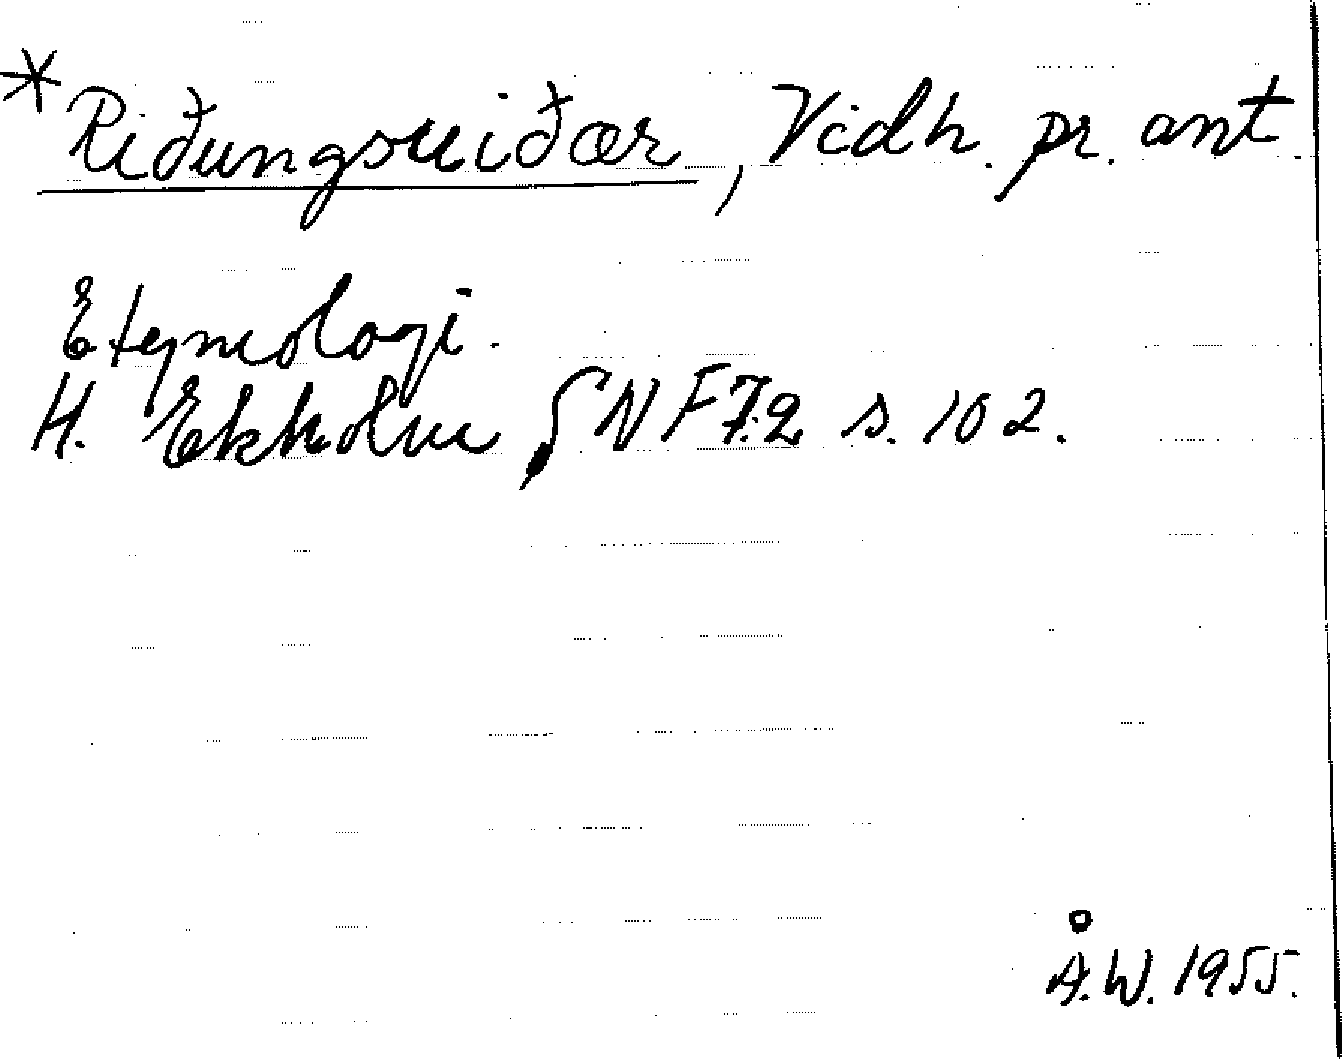 *Riðungsuiðær, Vidh. pr. ant.
Etymologi.
H. Ekholm, SNF 7:2 s. 102.
Å.W. 1955.